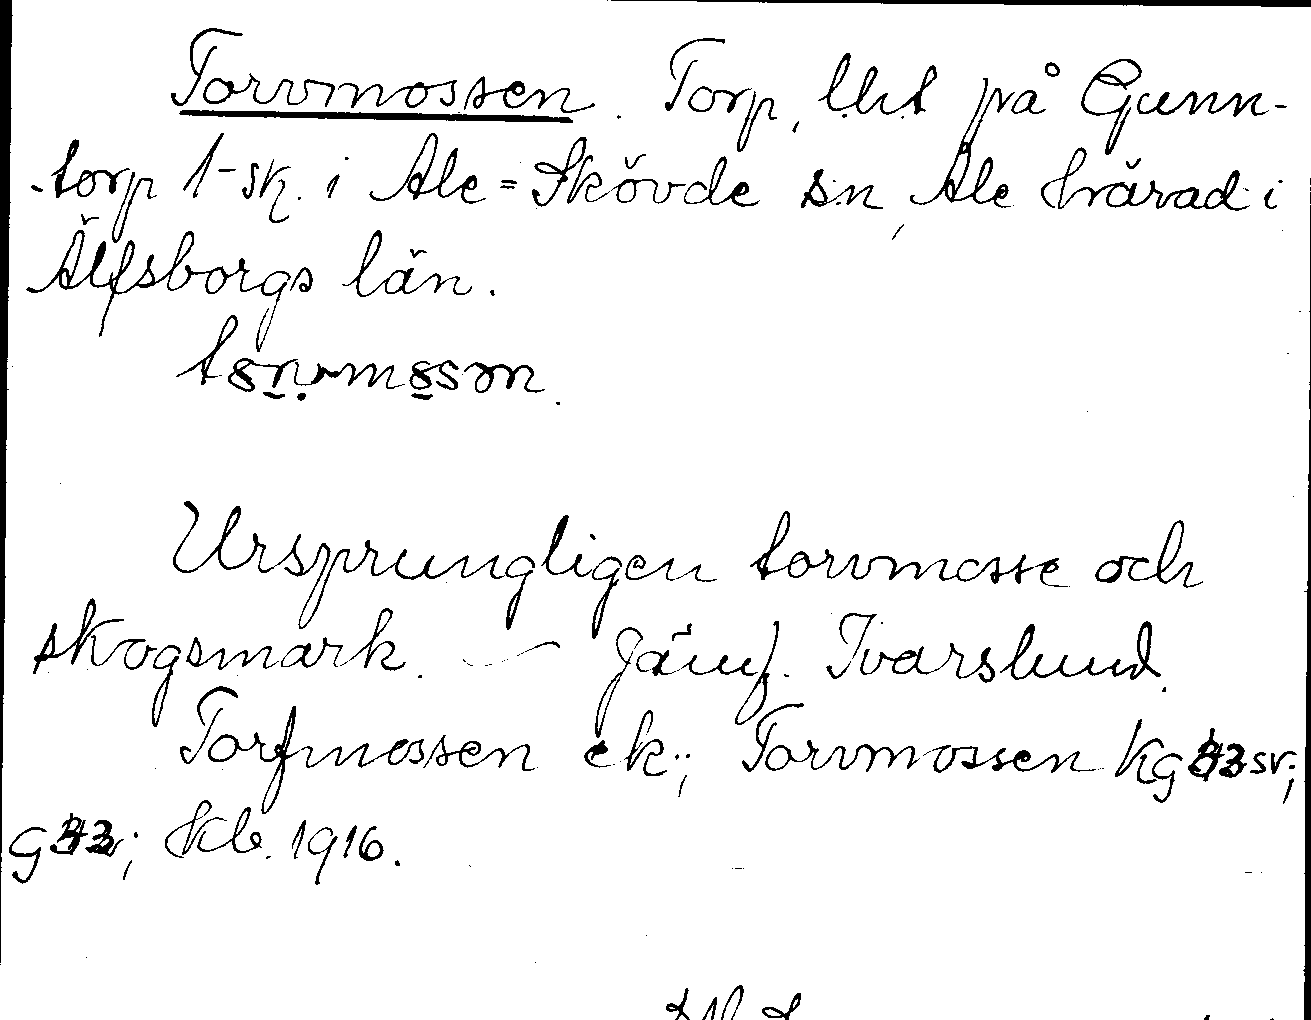 Torvmossen. Torp, l.ht på Gunn-
torp 1-sk. i Ale-Skövde sn, Ale härad i
Älfsborgs län.
Ursprungligen torvmosse och
skogsmark. — Jämf. Ivarslund.
Torfmossen ek.; Torvmossen Kg 33 sv;
g 33; Kb. 1916.